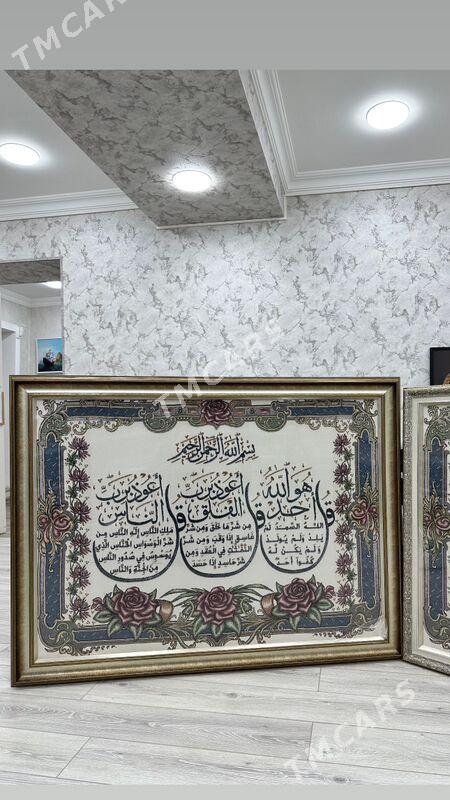 TMCARS
بسم الله الرحمن الرحيم
قل هو الله أحد
الله الصمد لم
يلد ولم يولد
ولم يكن له
كفوا أحد
قل أعوذ برب الفلق
من شر ما خلق ومن شر
غاسق إذا وقب ومن شر
النفثت في العقد ومن
شر حاسد إذا حسد
قل أعوذ برب الناس
ملك الناس إله الناس من
شر الوسواس الخناس الذي
يوسوس في صدور الناس
من الجنة والناس
TMCARS
TMCARS
TMCARS